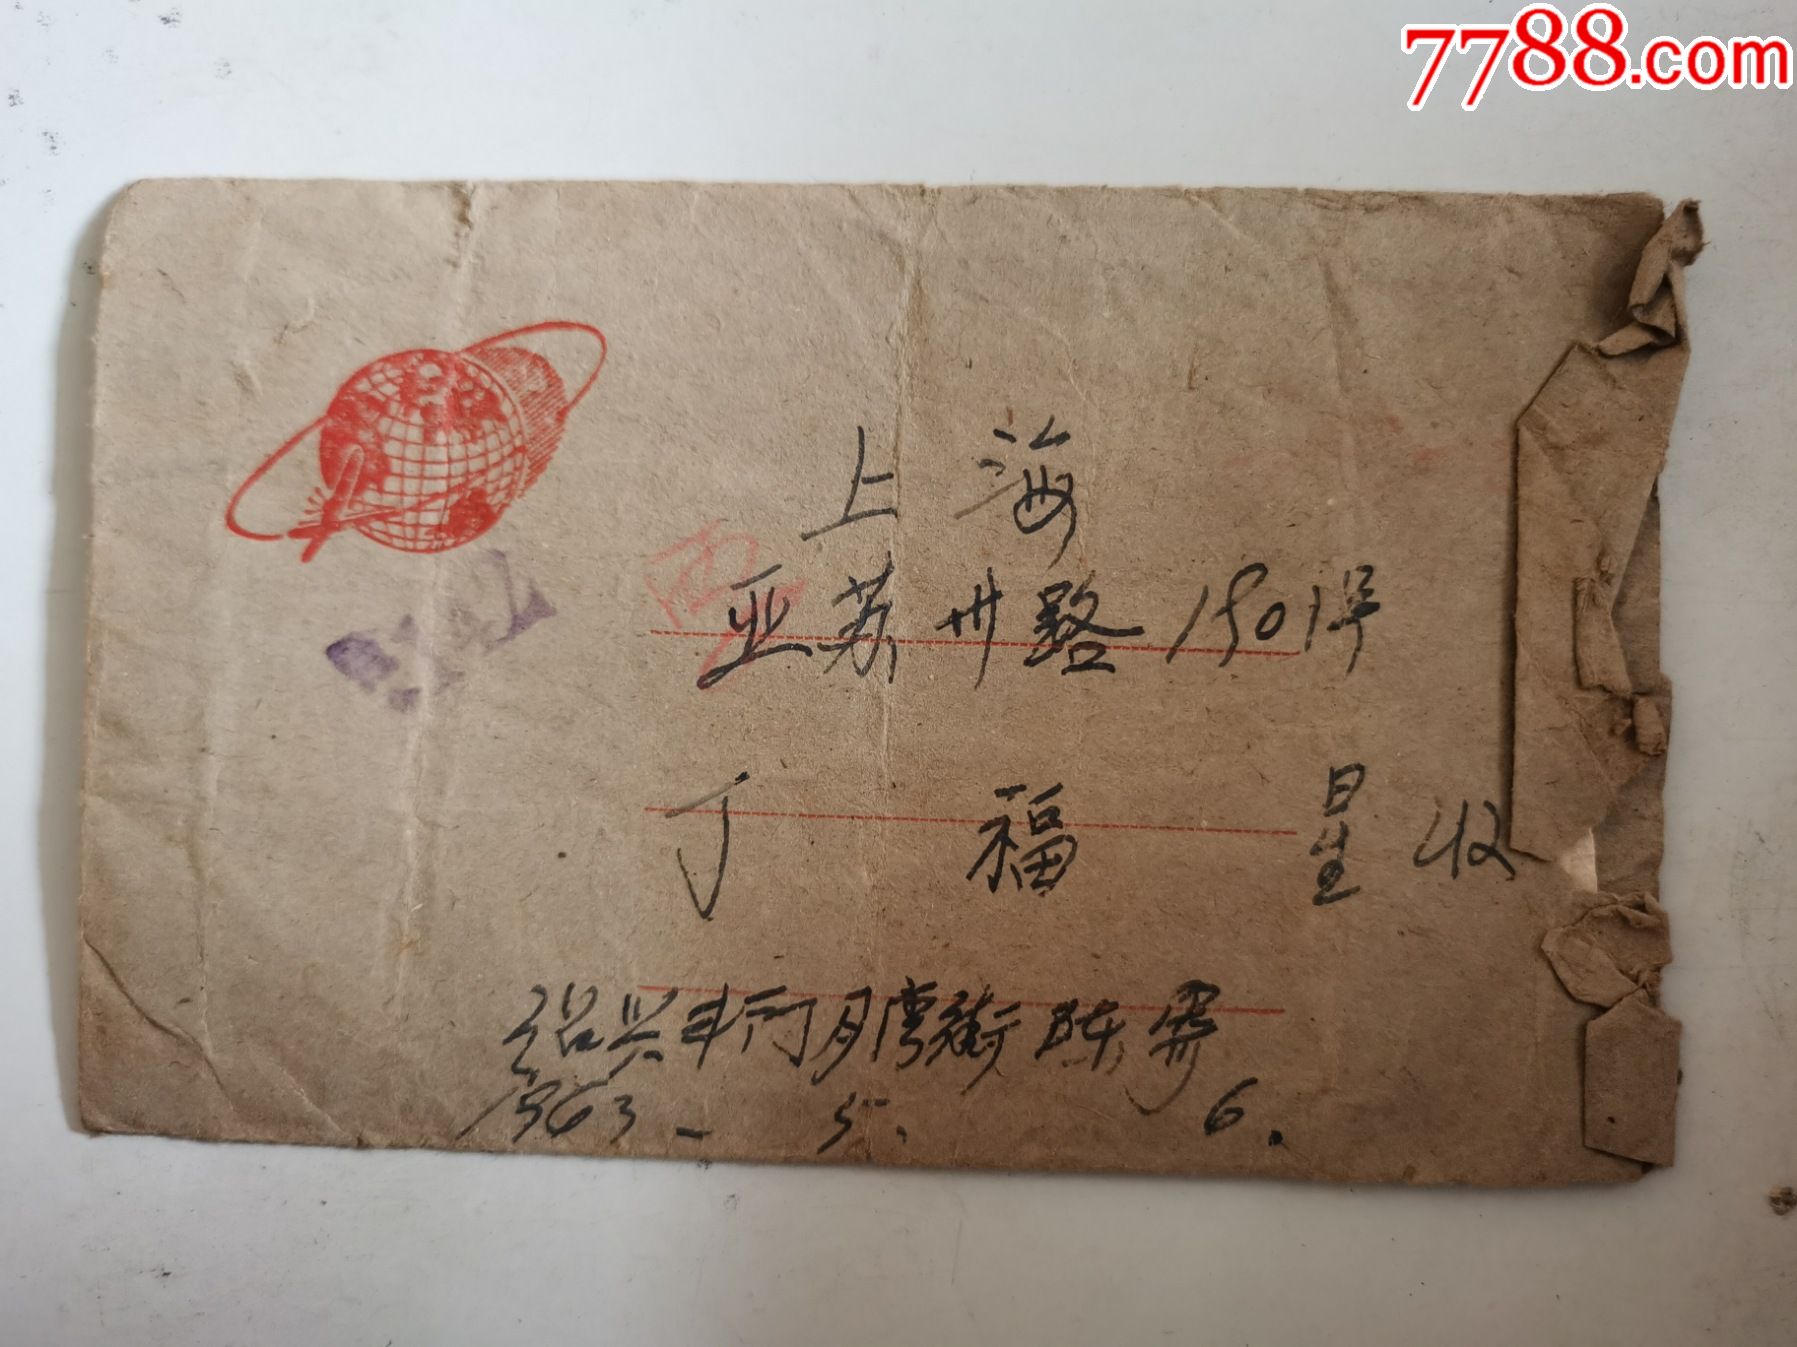 7788.com
上海
西
亚苏州路1901号
丁福星收
绍兴昌门月湾街陈寄
1963-5.6.